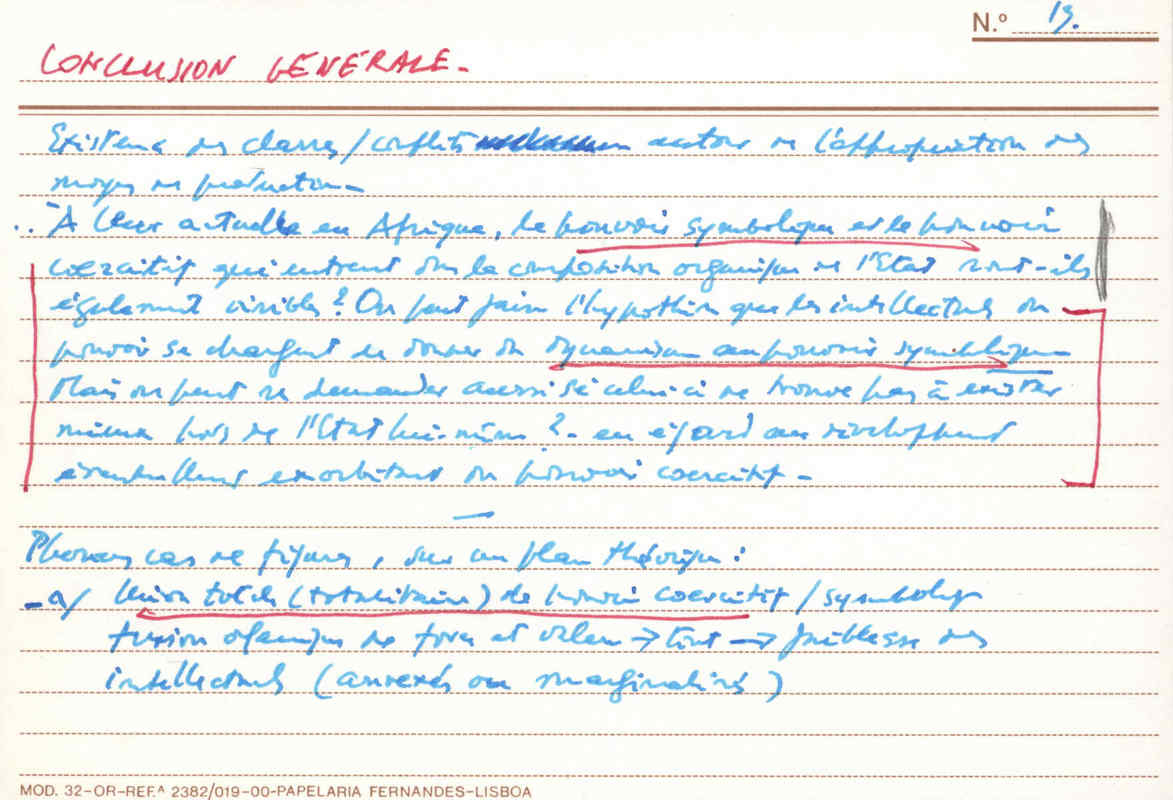 N.º 13.
CONCLUSION GÉNÉRALE -
Existence des classes/conflits autour de l'appropriation des
moyens de production -
.. À l'heure actuelle en Afrique, le pouvoir symbolique et le pouvoir
coercitif qui entrent dans la composition organique de l'État sont-ils
également visibles ? On peut faire l'hypothèse que les intellectuels du
pouvoir se chargent de donner du dynamisme au pouvoir symbolique
Mais on peut se demander aussi si celui-ci ne trouve pas à exister
mieux hors de l'État lui-même ? - en égard au développement
éventuellement exorbitant du pouvoir coercitif -
Plusieurs cas de figures, sur un plan théorique :
- a/ Union totale (totalitaire) de pouvoir coercitif / symbolique
fusion organique de force et valeur → État → faiblesse des
intellectuels (annexés ou marginalisés)
MOD. 32-OR-REF.ª 2382/019-00-PAPELARIA FERNANDES-LISBOA